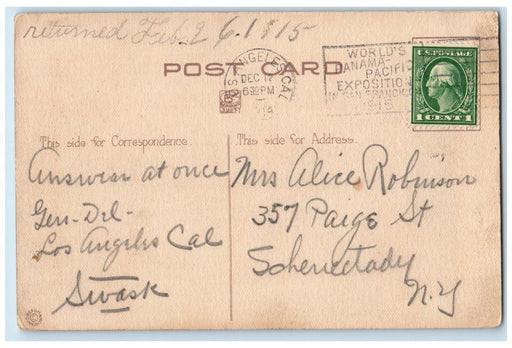 returned Feb. 26. 1915
POST CARD
LOS ANGELES, CAL
DEC 12
6 30 PM
1914
WORLD'S
PANAMA-
PACIFIC
EXPOSITION
IN SAN FRANCISCO
1915
U.S. POSTAGE
1 CENT 1
This side for Correspondence.
This side for Address.
Answer at once
Gen-Del-
Los Angeles Cal
Swask
Mrs Alice Robinson
357 Paige St
Schenectady
N.Y